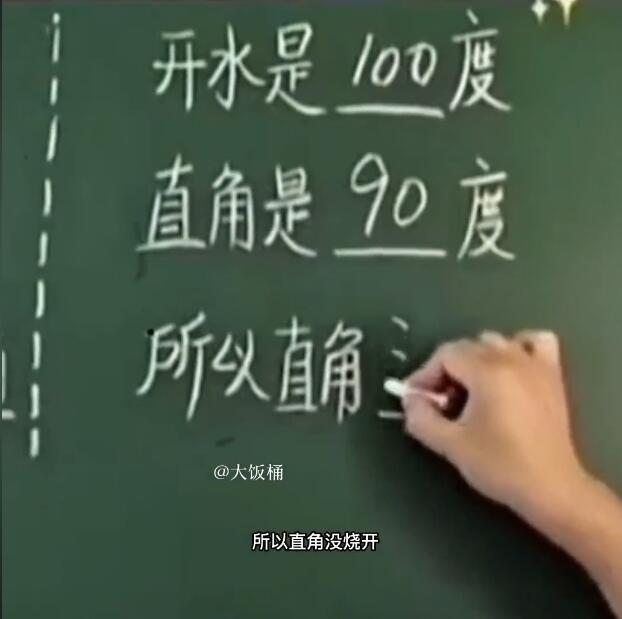 开水是 100 度
直角是 90 度
所以直角
@大饭桶
所以直角没烧开